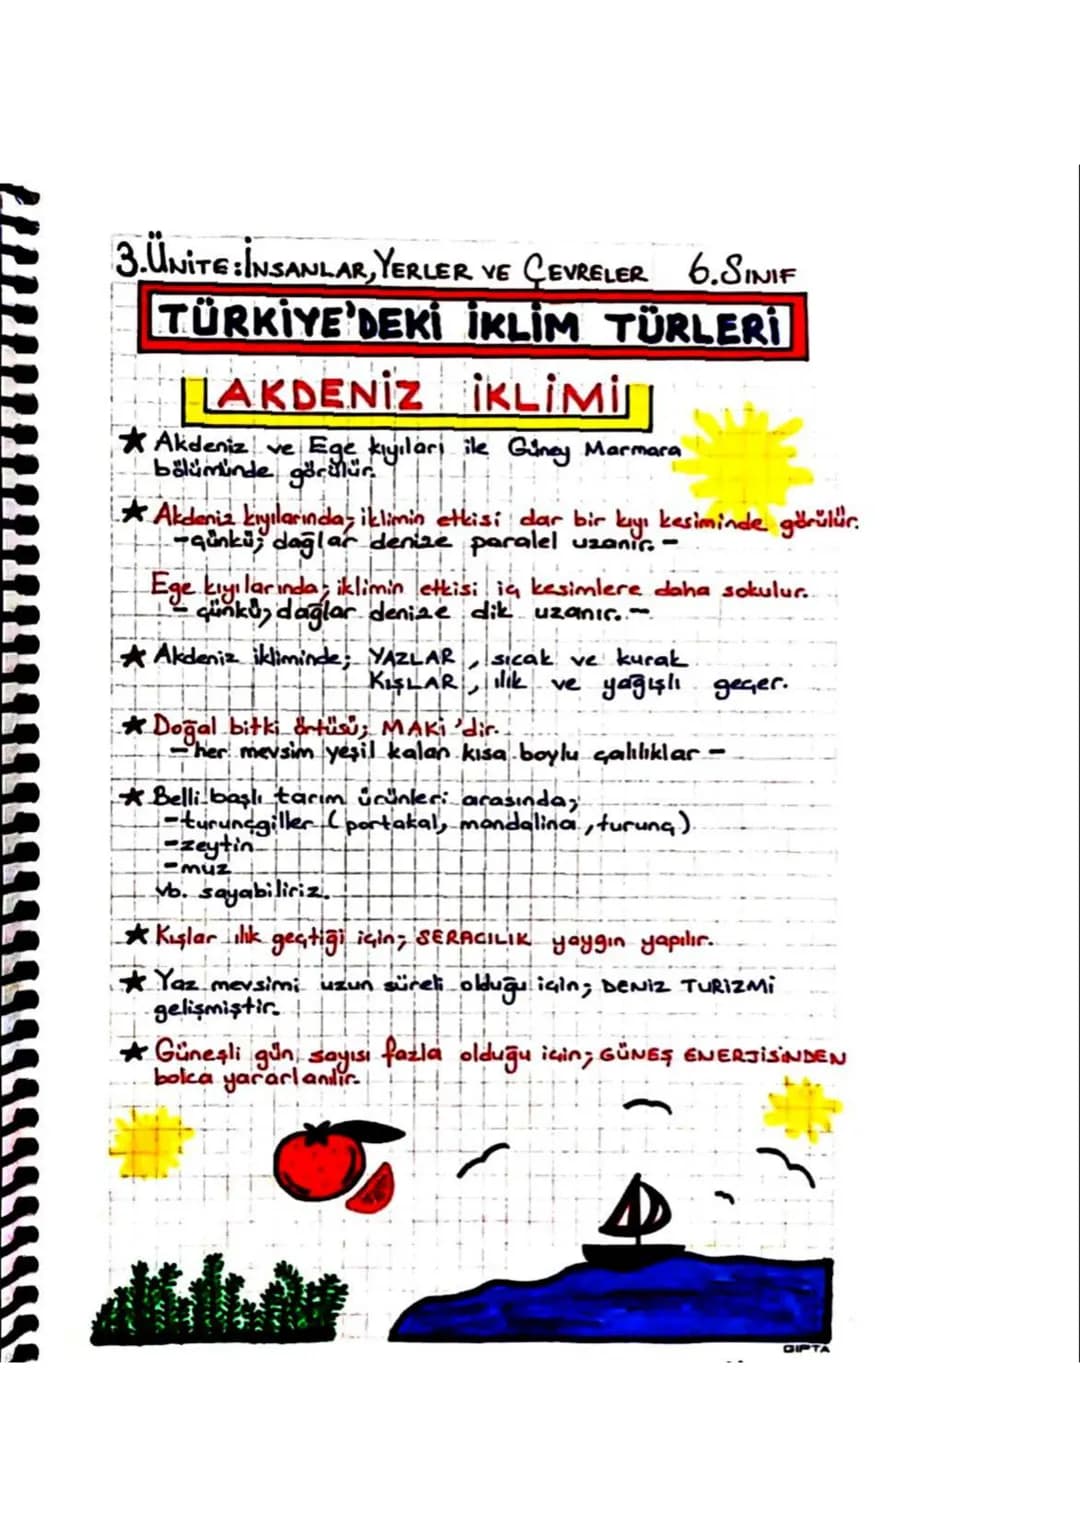 3.ÜNİTE:İNSANLAR, YERLER VE ÇEVRELER 6.SINIF
TÜRKİYE'DEKİ İKLİM TÜRLERİ
AKDENİZ İKLİMİ
★ Akdeniz ve Ege kıyıları ile Güney Marmara
bölümünde görülür.
★ Akdeniz kıyılarında; iklimin etkisi dar bir kıyı kesiminde görülür.
-çünkü; dağlar denize paralel uzanır.-
Ege kıyılarında; iklimin etkisi iç kesimlere daha sokulur.
- çünkü; dağlar denize dik uzanır.-
★ Akdeniz ikliminde; YAZLAR, sıcak ve kurak
KIŞLAR, ılık ve yağışlı geçer.
★ Doğal bitki örtüsü; MAKİ'dir.
-her mevsim yeşil kalan kısa boylu çalılıklar-
★ Belli başlı tarım ürünleri arasında;
-turunçgiller (portakal, mandalina, turunç)
-zeytin
-muz
vb. sayabiliriz.
★ Kışlar ılık geçtiği için; SERACILIK yaygın yapılır.
★ Yaz mevsimi uzun süreli olduğu için; DENİZ TURİZMİ
gelişmiştir.
★ Güneşli gün sayısı fazla olduğu için; GÜNEŞ ENERJİSİNDEN
bolca yararlanılır.
GIPTA